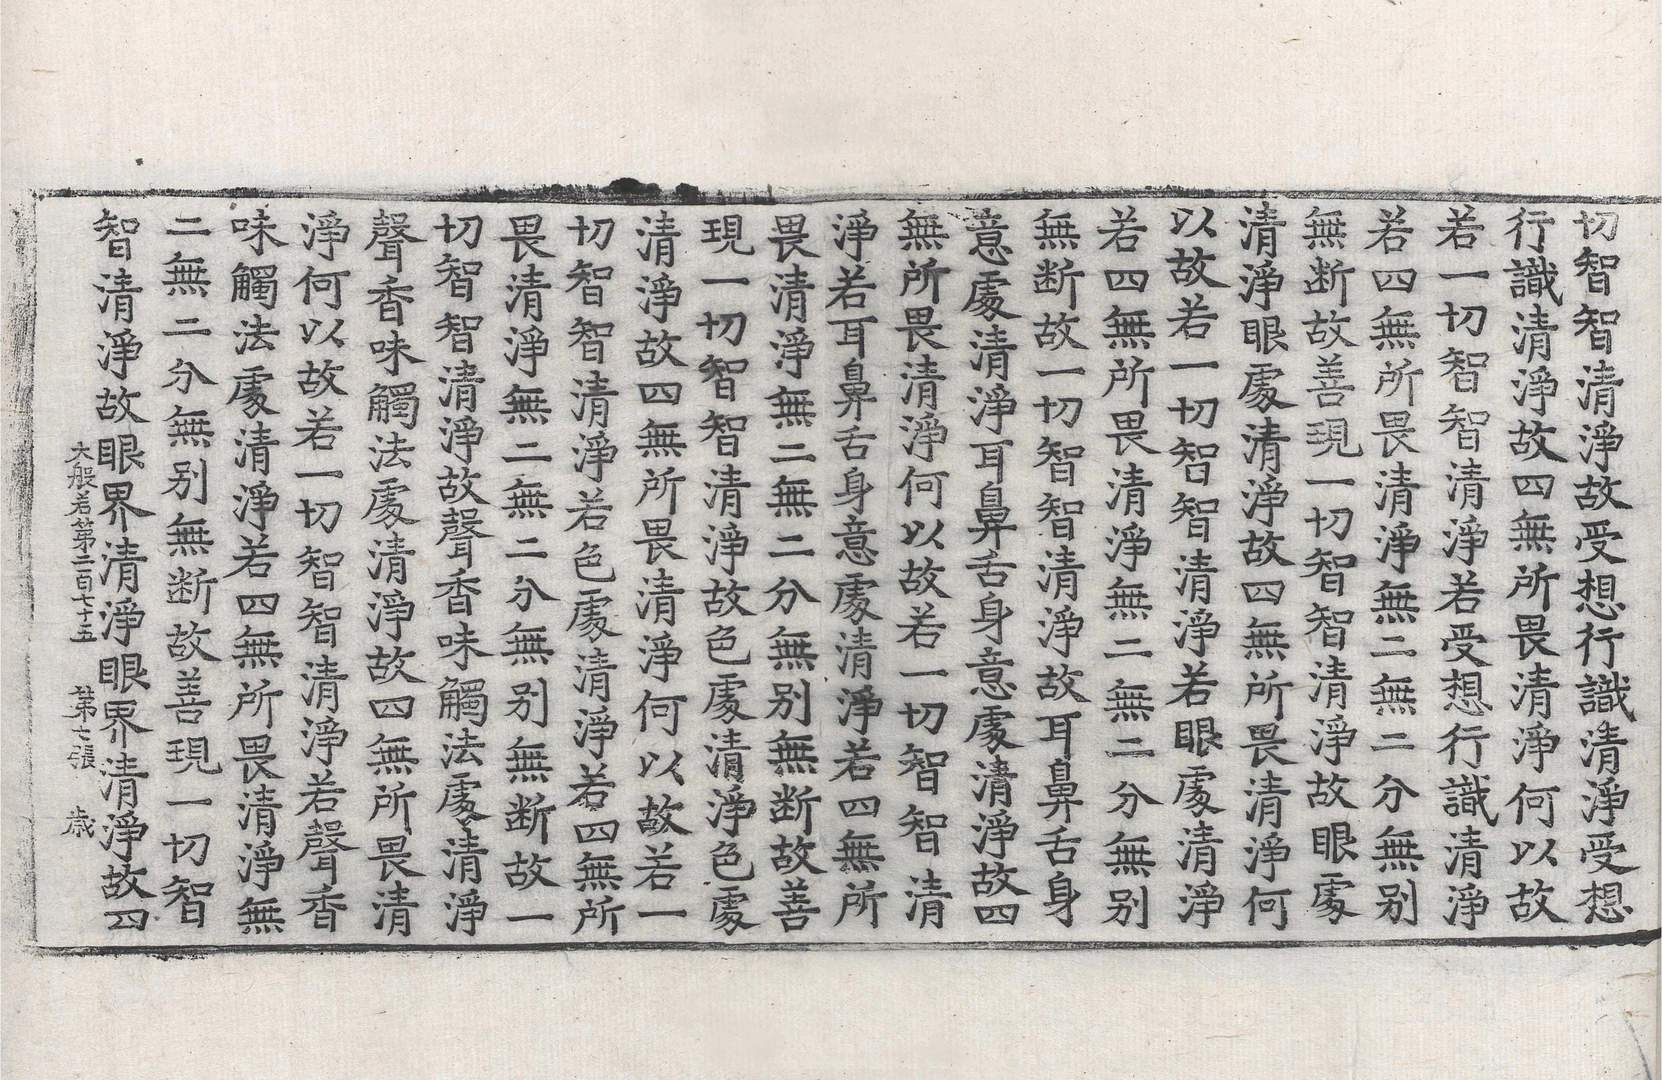 切智智清淨故受想行識清淨受想
行識清淨故四無所畏清淨何以故
若一切智智清淨若受想行識清淨
若四無所畏清淨無二無二分無别
無断故善現一切智智清淨故眼處
清淨眼處清淨故四無所畏清淨何
以故若一切智智清淨若眼處清淨
若四無所畏清淨無二無二分無别
無断故一切智智清淨故耳鼻舌身
意處清淨耳鼻舌身意處清淨故四
無所畏清淨何以故若一切智智清
淨若耳鼻舌身意處清淨若四無所
畏清淨無二無二分無别無断故善
現一切智智清淨故色處清淨色處
清淨故四無所畏清淨何以故若一
切智智清淨若色處清淨若四無所
畏清淨無二無二分無别無断故一
切智智清淨故聲香味觸法處清淨
聲香味觸法處清淨故四無所畏清
淨何以故若一切智智清淨若聲香
味觸法處清淨若四無所畏清淨無
二無二分無别無断故善現一切智
智清淨故眼界清淨眼界清淨故四
大般若第二百七十五 第七張 歲